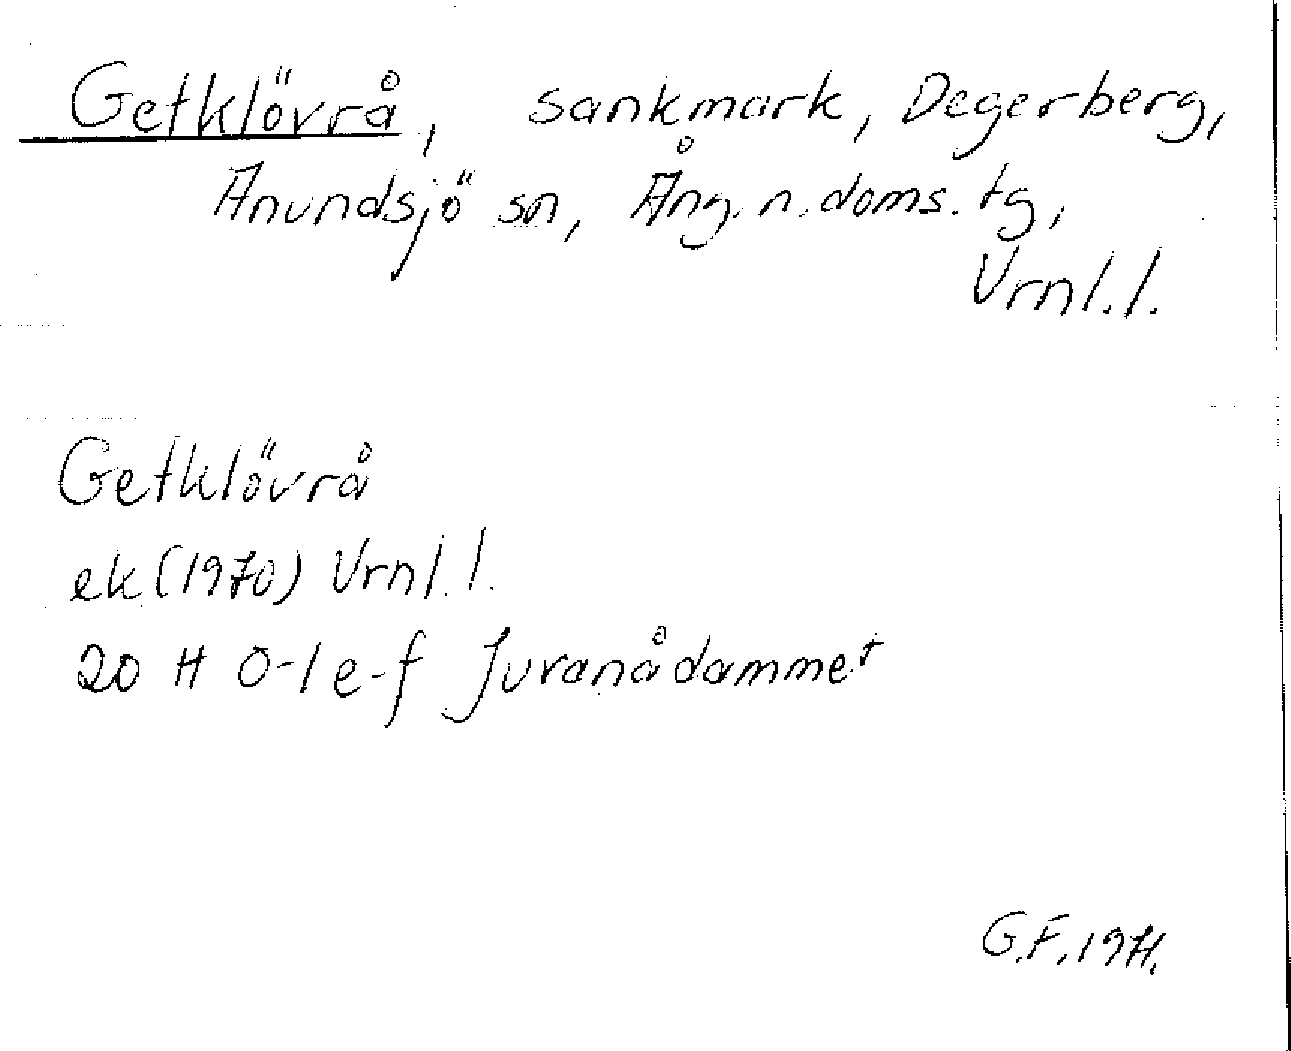 Getklövrå, sankmark, Degerberg,
Anundsjö sn, Ång.n.doms.tg,
Vrnl.l.
Getklövrå
ek (1970) Vrnl.l.
20 H 0-1 e-f Juvanådammet
G.F. 1971.